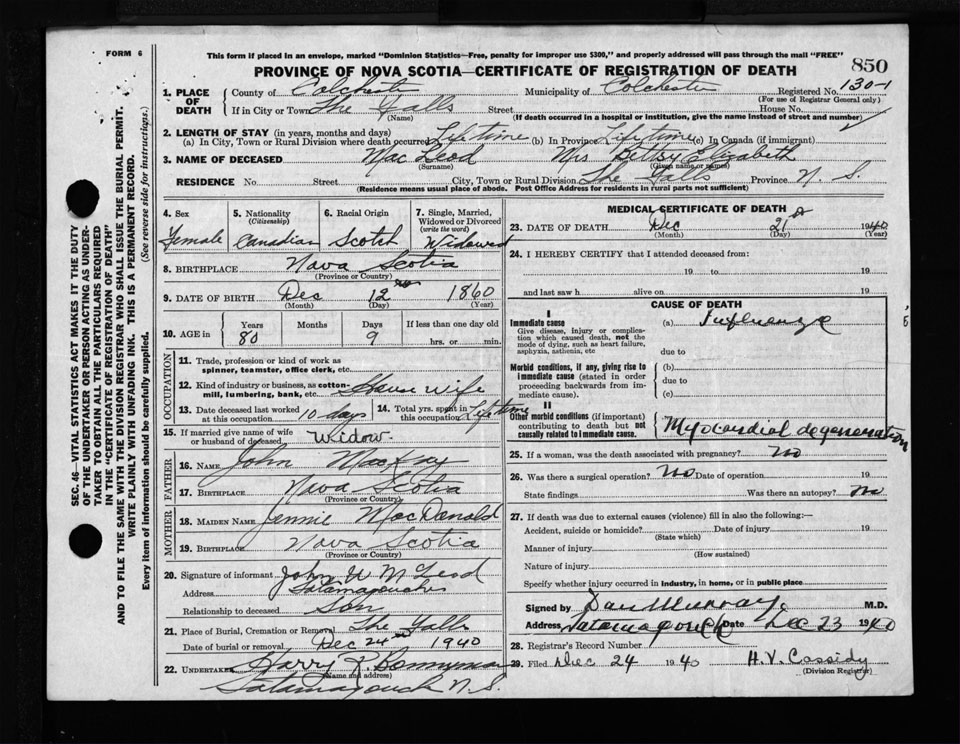 FORM 6
This form if placed in an envelope, marked "Dominion Statistics—Free, penalty for improper use $300," and properly addressed will pass through the mail "FREE"
850
PROVINCE OF NOVA SCOTIA—CERTIFICATE OF REGISTRATION OF DEATH
1. PLACE OF DEATH
County of Colchester Municipality of Colchester Registered No. 130-1
(For use of Registrar General only)
If in City or Town The Falls Street House No.
(Name) (If death occurred in a hospital or institution, give the name instead of street and number)
2. LENGTH OF STAY (in years, months and days)
(a) In City, Town or Rural Division where death occurred Lifetime (b) In Province Lifetime (c) In Canada (if immigrant)
3. NAME OF DECEASED Mac Leod Mrs Bethsy Elizabeth
(Surname) (Given name or names)
RESIDENCE No. Street City, Town or Rural Division The Falls Province N. S.
(Residence means usual place of abode. Post Office Address for residents in rural parts not sufficient)
4. Sex
Female
5. Nationality
(Citizenship)
Canadian
6. Racial Origin
Scotch
7. Single, Married, Widowed or Divorced
(write the word)
Widowed
8. BIRTHPLACE Nova Scotia
(Province or Country)
9. DATE OF BIRTH Dec 12 1860
(Month) (Day) (Year)
10. AGE in
Years Months Days If less than one day old
80 9 hrs. or min.
OCCUPATION
11. Trade, profession or kind of work as
spinner, teamster, office clerk, etc.
12. Kind of industry or business, as cotton-
mill, lumbering, bank, etc. House wife
13. Date deceased last worked
at this occupation 10 days
14. Total yrs. spent in
this occupation Lifetime
15. If married give name of wife
or husband of deceased Widow.
FATHER
16. NAME John MacKay
17. BIRTHPLACE Nova Scotia
(Province or Country)
MOTHER
18. MAIDEN NAME Jennie MacDonald
19. BIRTHPLACE Nova Scotia
(Province or Country)
20. Signature of informant John W McLeod
Address Tatamagouche
Relationship to deceased Son
21. Place of Burial, Cremation or Removal The Falls
Date of burial or removal Dec 24 1940
22. UNDERTAKER Harry R. Bonnyman
(Name and address)
Tatamagouche N. S.
MEDICAL CERTIFICATE OF DEATH
23. DATE OF DEATH Dec 21 1940
(Month) (Day) (Year)
24. I HEREBY CERTIFY that I attended deceased from:
19 to 19
and last saw h alive on 19
CAUSE OF DEATH
I
Immediate cause
Give disease, injury or complica-
tion which caused death, not the
mode of dying, such as heart failure,
asphyxia, asthenia, etc
(a) Influenza
due to
Morbid conditions, if any, giving rise to
immediate cause (stated in order
proceeding backwards from im-
mediate cause).
(b)
due to
(c)
II
Other morbid conditions (if important)
contributing to death but not
causally related to immediate cause.
Myocardial degeneration
25. If a woman, was the death associated with pregnancy? No
26. Was there a surgical operation? No Date of operation 19
State findings Was there an autopsy? No
27. If death was due to external causes (violence) fill in also the following:—
Accident, suicide or homicide? Date of injury 19
(State which)
Manner of injury
(How sustained)
Nature of injury
Specify whether injury occurred in industry, in home, or in public place
Signed by Dan Murray M.D.
Address Tatamagouche Date Dec 23 1940
28. Registrar's Record Number
29. Filed Dec 24 1940 H. V. Cassidy
(Division Registrar)
SEC. 46—VITAL STATISTICS ACT MAKES IT THE DUTY
OF THE UNDERTAKER OR PERSON ACTING AS UNDER-
TAKER TO OBTAIN ALL THE PARTICULARS REQUIRED
IN THE "CERTIFICATE OF REGISTRATION OF DEATH"
AND TO FILE THE SAME WITH THE DIVISION REGISTRAR WHO SHALL ISSUE THE BURIAL PERMIT.
WRITE PLAINLY WITH UNFADING INK. THIS IS A PERMANENT RECORD.
Every item of information should be carefully supplied. (See reverse side for instructions.)